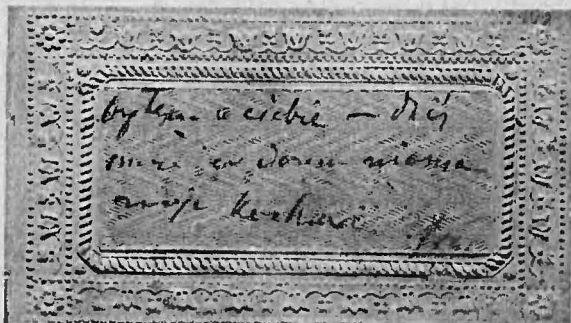 byłem u ciebie — dziś
mnie w domu niema
moje kochanie